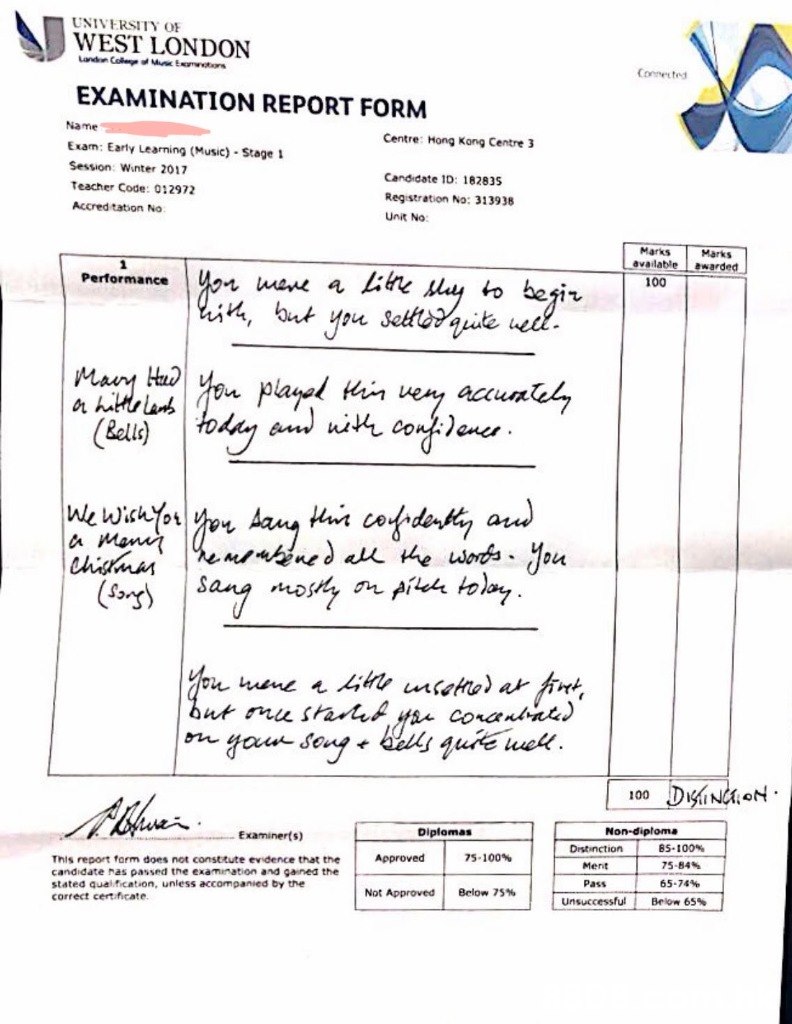 UNIVERSITY OF
WEST LONDON
London College of Music Examinations
Connected
EXAMINATION REPORT FORM
Name
Exam: Early Learning (Music) - Stage 1
Session: Winter 2017
Teacher Code: 012972
Accreditation No:
Centre: Hong Kong Centre 3
Candidate ID: 182835
Registration No: 313938
Unit No:
Marks available
Marks awarded
1
Performance
100
You were a little shy to begin
with, but you settled quite well.
Mary Had
a Little Lamb
(Bells)
You played this very accurately
today and with confidence.
We Wish You
a Merry
Christmas
(Song)
You sang this confidently and
remembered all the words. You
sang mostly on pitch today.
You were a little unsettled at first,
but once started you concentrated
on your song + bells quite well.
100 DISTINCTION.
Examiner(s)
This report form does not constitute evidence that the
candidate has passed the examination and gained the
stated qualification, unless accompanied by the
correct certificate.
Diplomas
Approved 75-100%
Not Approved Below 75%
Non-diploma
Distinction 85-100%
Merit 75-84%
Pass 65-74%
Unsuccessful Below 65%